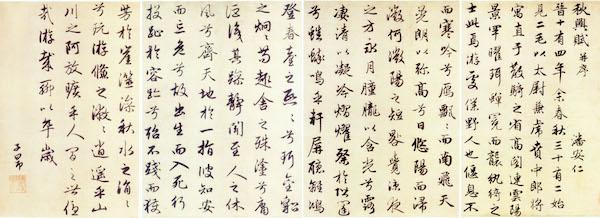 秋興賦并序
潘安仁
晉十有四年余春秋三十有二始
見二毛以太尉掾兼虎賁中郎將
寓直于散騎之省高閣連雲陽
景罕曜珥蟬冕而襲紈綺之
士此焉游處僕野人也偃息不
而寒吟兮鴈飄飄而南飛天
晃朗以彌高兮日悠陽而浸
微何微陽之短晷覺涼夜
之方永月朣朧以含光兮露
淒清以凝冷熠燿粲於階闥
兮蟋蟀鳴乎軒屏聽離鴻
登春臺之熙熙兮珥金貂
之炯炯苟趣舍之殊塗兮庸
詎識其躁靜聞至人之休
風兮齊天地於一指彼知安
而忘危兮故出生而入死行
投趾於容跡兮殆不踐而獲
芳於崖澨澡秋水之涓涓
兮玩游儵之潎潎逍遙乎山
川之阿放曠乎人間之世優
哉游哉聊以卒歲
子昂